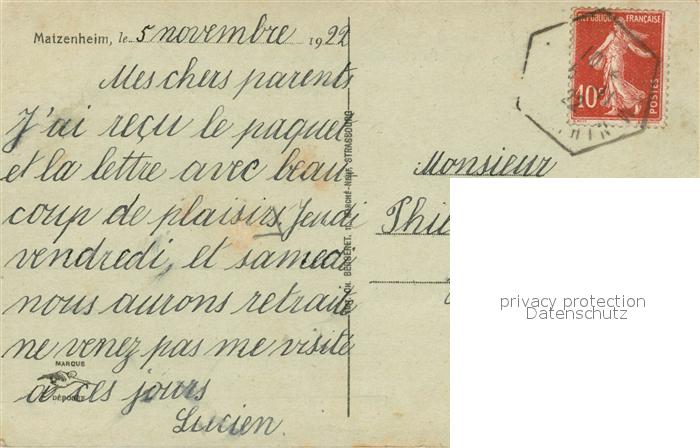 Matzenheim, le 5 novembre 1922
Mes chers parents
J'ai reçu le paquet
et la lettre avec beau
coup de plaisirs Jeudi
vendredi, et samedi
nous aurons retraite
ne venez pas me visite
à ces jours
Lucien.
MARQUE
DÉPOSÉE
MARCHÉ-NEUF, STRASBOURG
REPUBLIQUE FRANÇAISE
10c
POSTES
Monsieur
privacy protection
Datenschutz